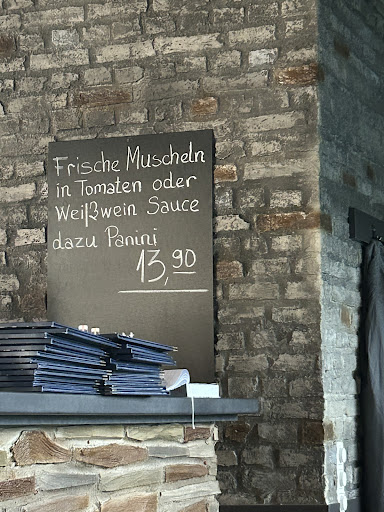 Frische Muscheln
in Tomaten oder
Weißwein Sauce
dazu Panini
13,90